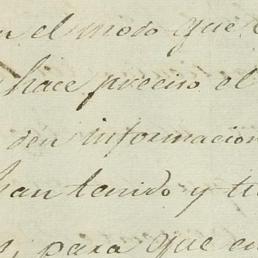 el modo que
hace preciso el
den informacion
han tenido y
para que en